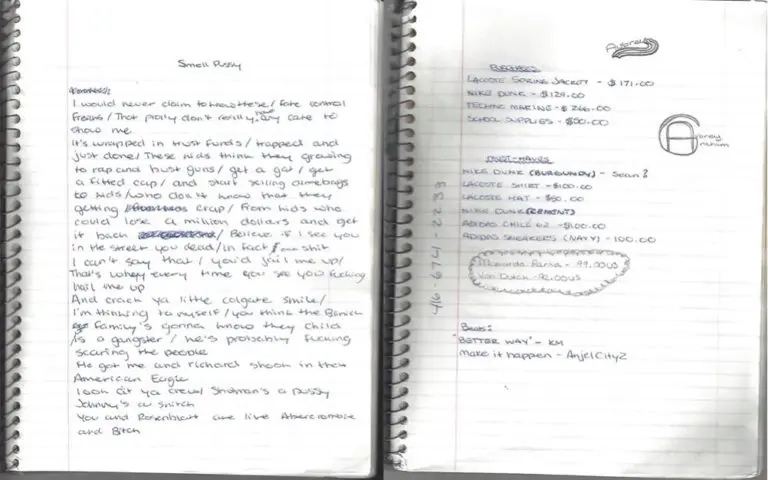 Smell Pussy
I would never claim to know these/ fate control
freaks/ That prolly don't really even care to
show me
It's wrapped in trust funds/ trapped and
just done/ These kids think they growing
to rap and bust guns/ get a gat/ get
a fitted cap/ and start selling dimebags
to kids/ who don't know that they
getting crap/ From kids who
could lose a million dollars and get
it back / Believe if I see you
in the street you dead/ In fact shit
I can't say that/ you'd jail me up/
That's why every time you see you fucking
hail me up
And crack ya little colgate smile/
I'm thinking to myself/ you think the
family's gonna know they child
is a gangster/ he's probably fucking
scaring the people
He got me and richard shook in the
American Eagle
Look at ya crew/ a pussy
Johnny's a snitch
You and Rosenblatt are like Abercrombie
and Bitch
Aubrey
PURCHASES
LACOSTE SPRING JACKET - $171.00
NIKE DUNK - $129.00
TECHNO MARINE - $266.00
SCHOOL SUPPLIES - $50.00
Aubrey
Graham
MUST-HAVES
NIKE DUNK (BURGUNDY) - Sean?
LACOSTE SHIRT - $100.00
LACOSTE HAT - $50.00
NIKE DUNK (CEMENT)
ADIDAS CHILE 62 - $100.00
ADIDAS SNEAKERS (NAVY) - 100.00
- 99.00US
Von Dutch - 92.00US
Beats:
'BETTER WAY' - KM
Make it happen - AnjelCity2